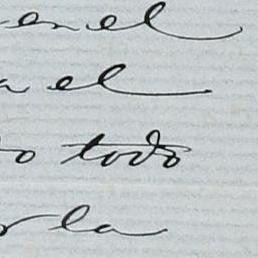 en el
a el
o todo
r la